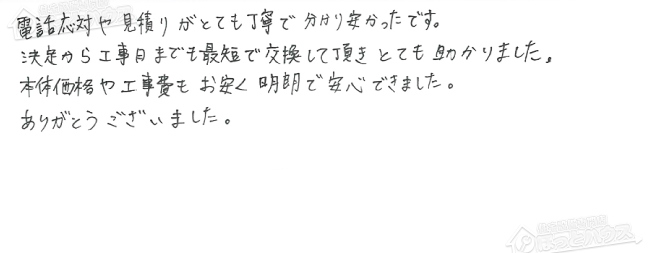 電話応対や見積りがとても丁寧で分り安かったです。
決定から工事日までも最短で交換して頂きとても助かりました。
本体価格や工事費もお安く明朗で安心できました。
ありがとうございました。